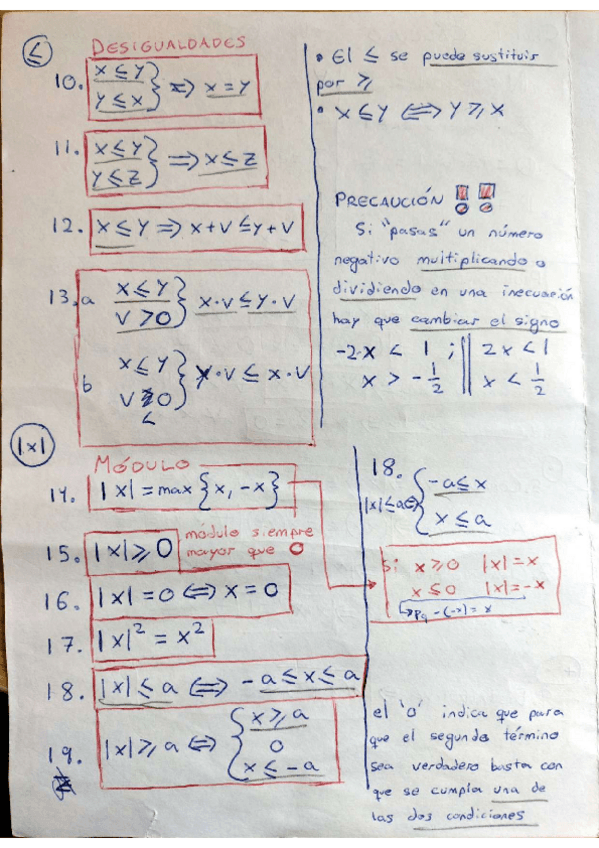 ≤ DESIGUALDADES
10. x ≤ y
y ≤ x } ⇒ x = y
11. x ≤ y
y ≤ z } ⇒ x ≤ z
12. x ≤ y ⇒ x+v ≤ y+v
13. a x ≤ y
v ≥ 0 } x·v ≤ y·v
b x ≤ y
v ≤ 0 } y·v ≤ x·v
• El ≤ se puede sustituir
por ≥
• x ≤ y ⇔ y ≥ x
PRECAUCIÓN !!
Si "pasas" un número
negativo multiplicando o
dividiendo en una inecuación
hay que cambiar el signo
-2·x < 1 ; || 2x < 1
x > -1/2 || x < 1/2
|x| MÓDULO
14. |x| = max {x, -x}
15. |x| ≥ 0 módulo siempre
mayor que 0
16. |x| = 0 ⇔ x = 0
17. |x|² = x²
18. |x| ≤ a ⇔ -a ≤ x ≤ a
19. |x| ≥ a ⇔ { x ≥ a
o
x ≤ -a
18.
|x| ≤ a ⇔ { -a ≤ x
x ≤ a
Si x ≥ 0 |x| = x
x ≤ 0 |x| = -x
↳ pq -(-x) = x
el 'o' indica que para
que el segundo término
sea verdadero basta con
que se cumpla una de
las dos condiciones